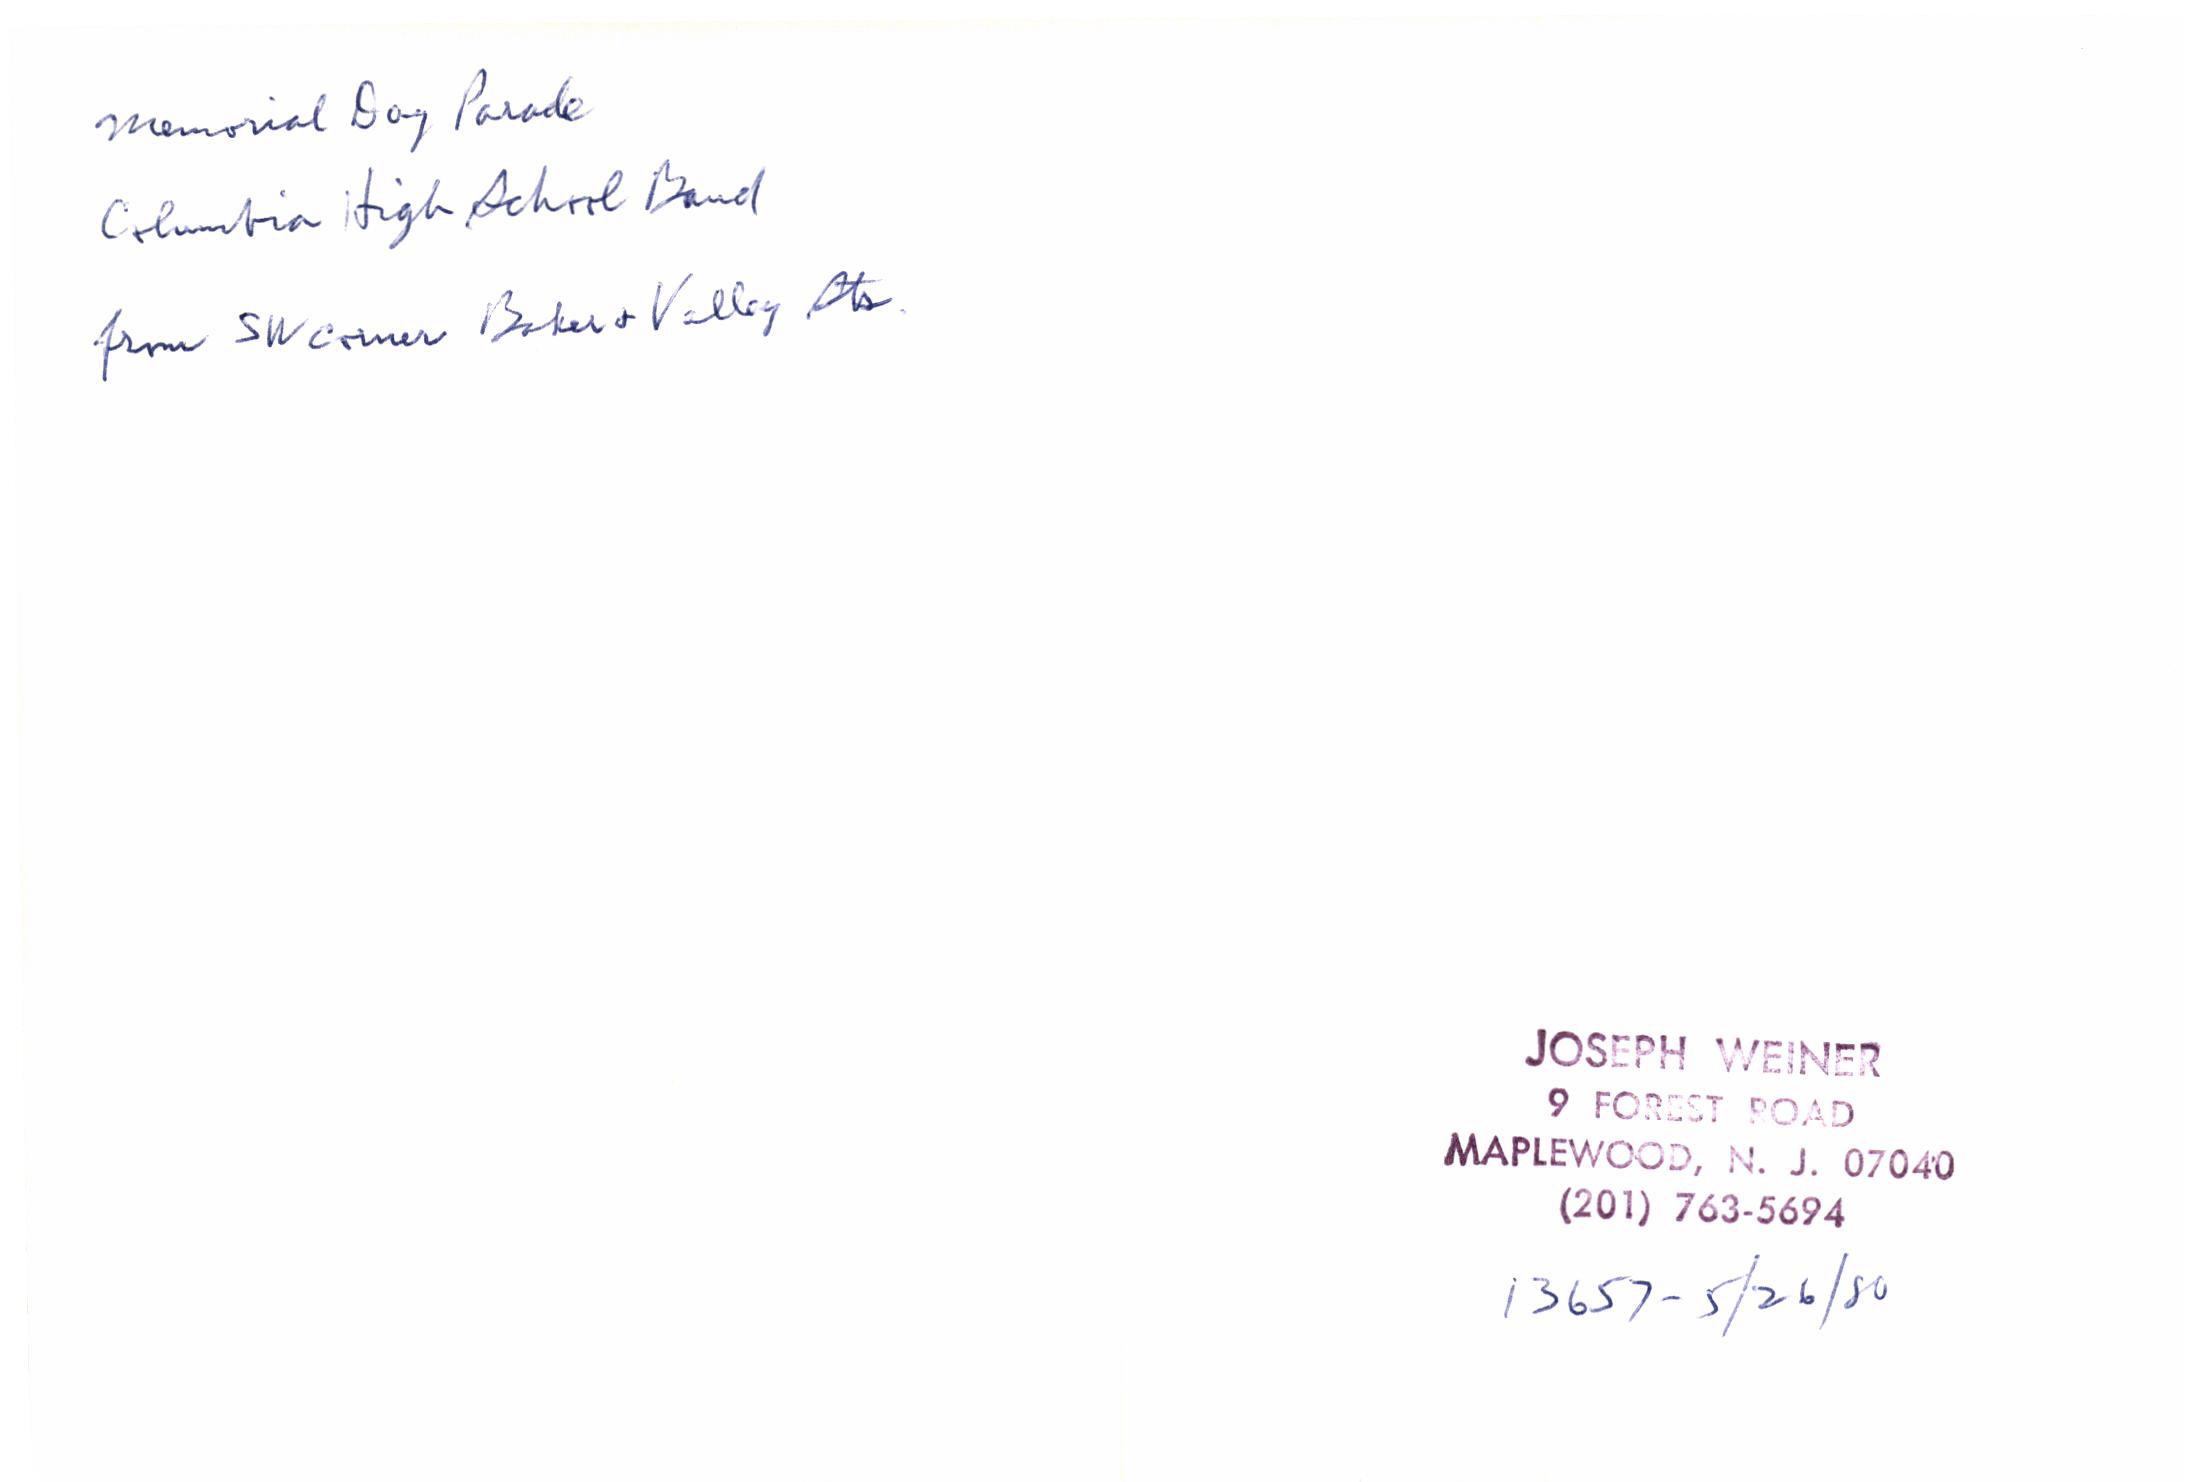 Memorial Day Parade
Columbia High School Band
from SW corner Baker & Valley Sts.
JOSEPH WEINER
9 FOREST ROAD
MAPLEWOOD, N. J. 07040
(201) 763-5694
13657-5/26/80